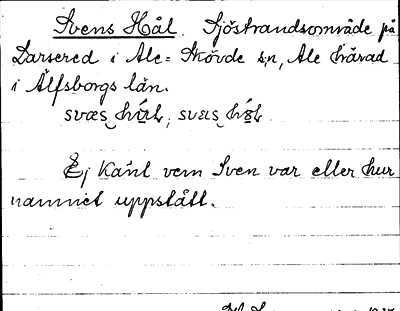 Svens Hål. Sjöstrandsområde på
Darsered i Ale-Skövde sn, Ale härad
i Älfsborgs län.
Ej känt vem Sven var eller hur
namnet uppstått.